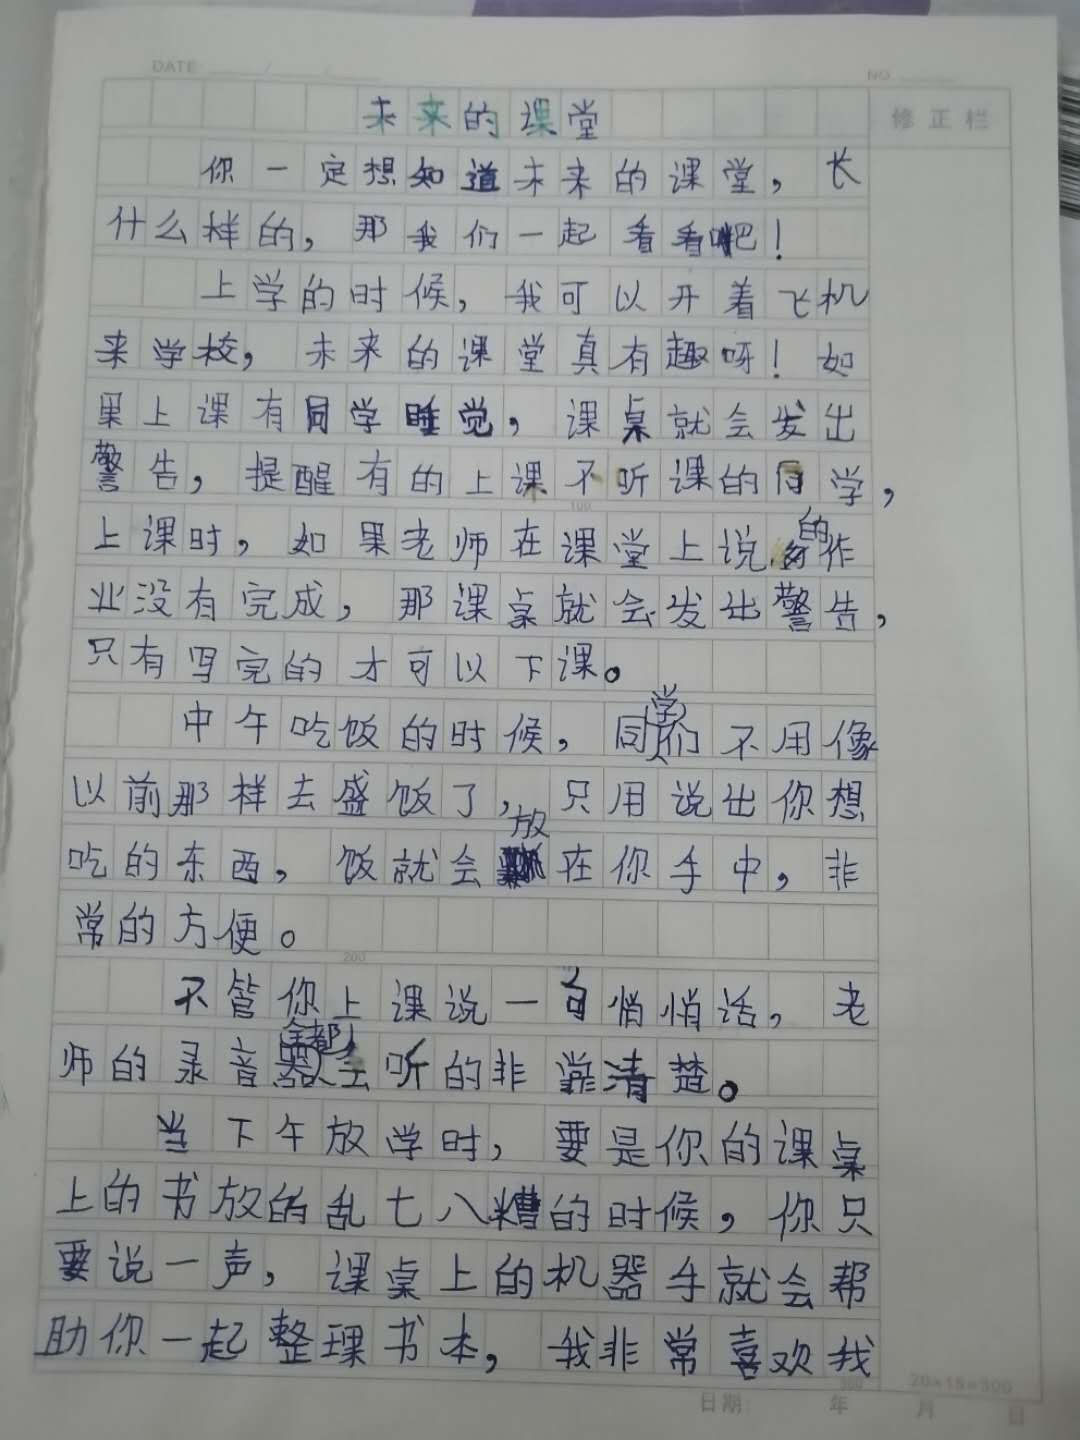 DATE
NO
未来的课堂
修正栏
你一定想知道未来的课堂，长
什么样的，那我们一起看看吧！
上学的时候，我可以开着飞机
来学校，未来的课堂真有趣呀！如
果上课有同学睡觉，课桌就会发出
警告，提醒有的上课不听课的同学，
100
上课时，如果老师在课堂上说的作
业没有完成，那课桌就会发出警告，
只有写完的才可以下课。
中午吃饭的时候，同学们不用像
以前那样去盛饭了，只用说出你想
吃的东西，饭就会放在你手中，非
常的方便。
200
不管你上课说一句悄悄话，老
师的录音器全都会听的非常清楚。
当下午放学时，要是你的课桌
上的书放的乱七八糟的时候，你只
要说一声，课桌上的机器手就会帮
助你一起整理书本，我非常喜欢我
300
20×15=300
日期: 年 月 日